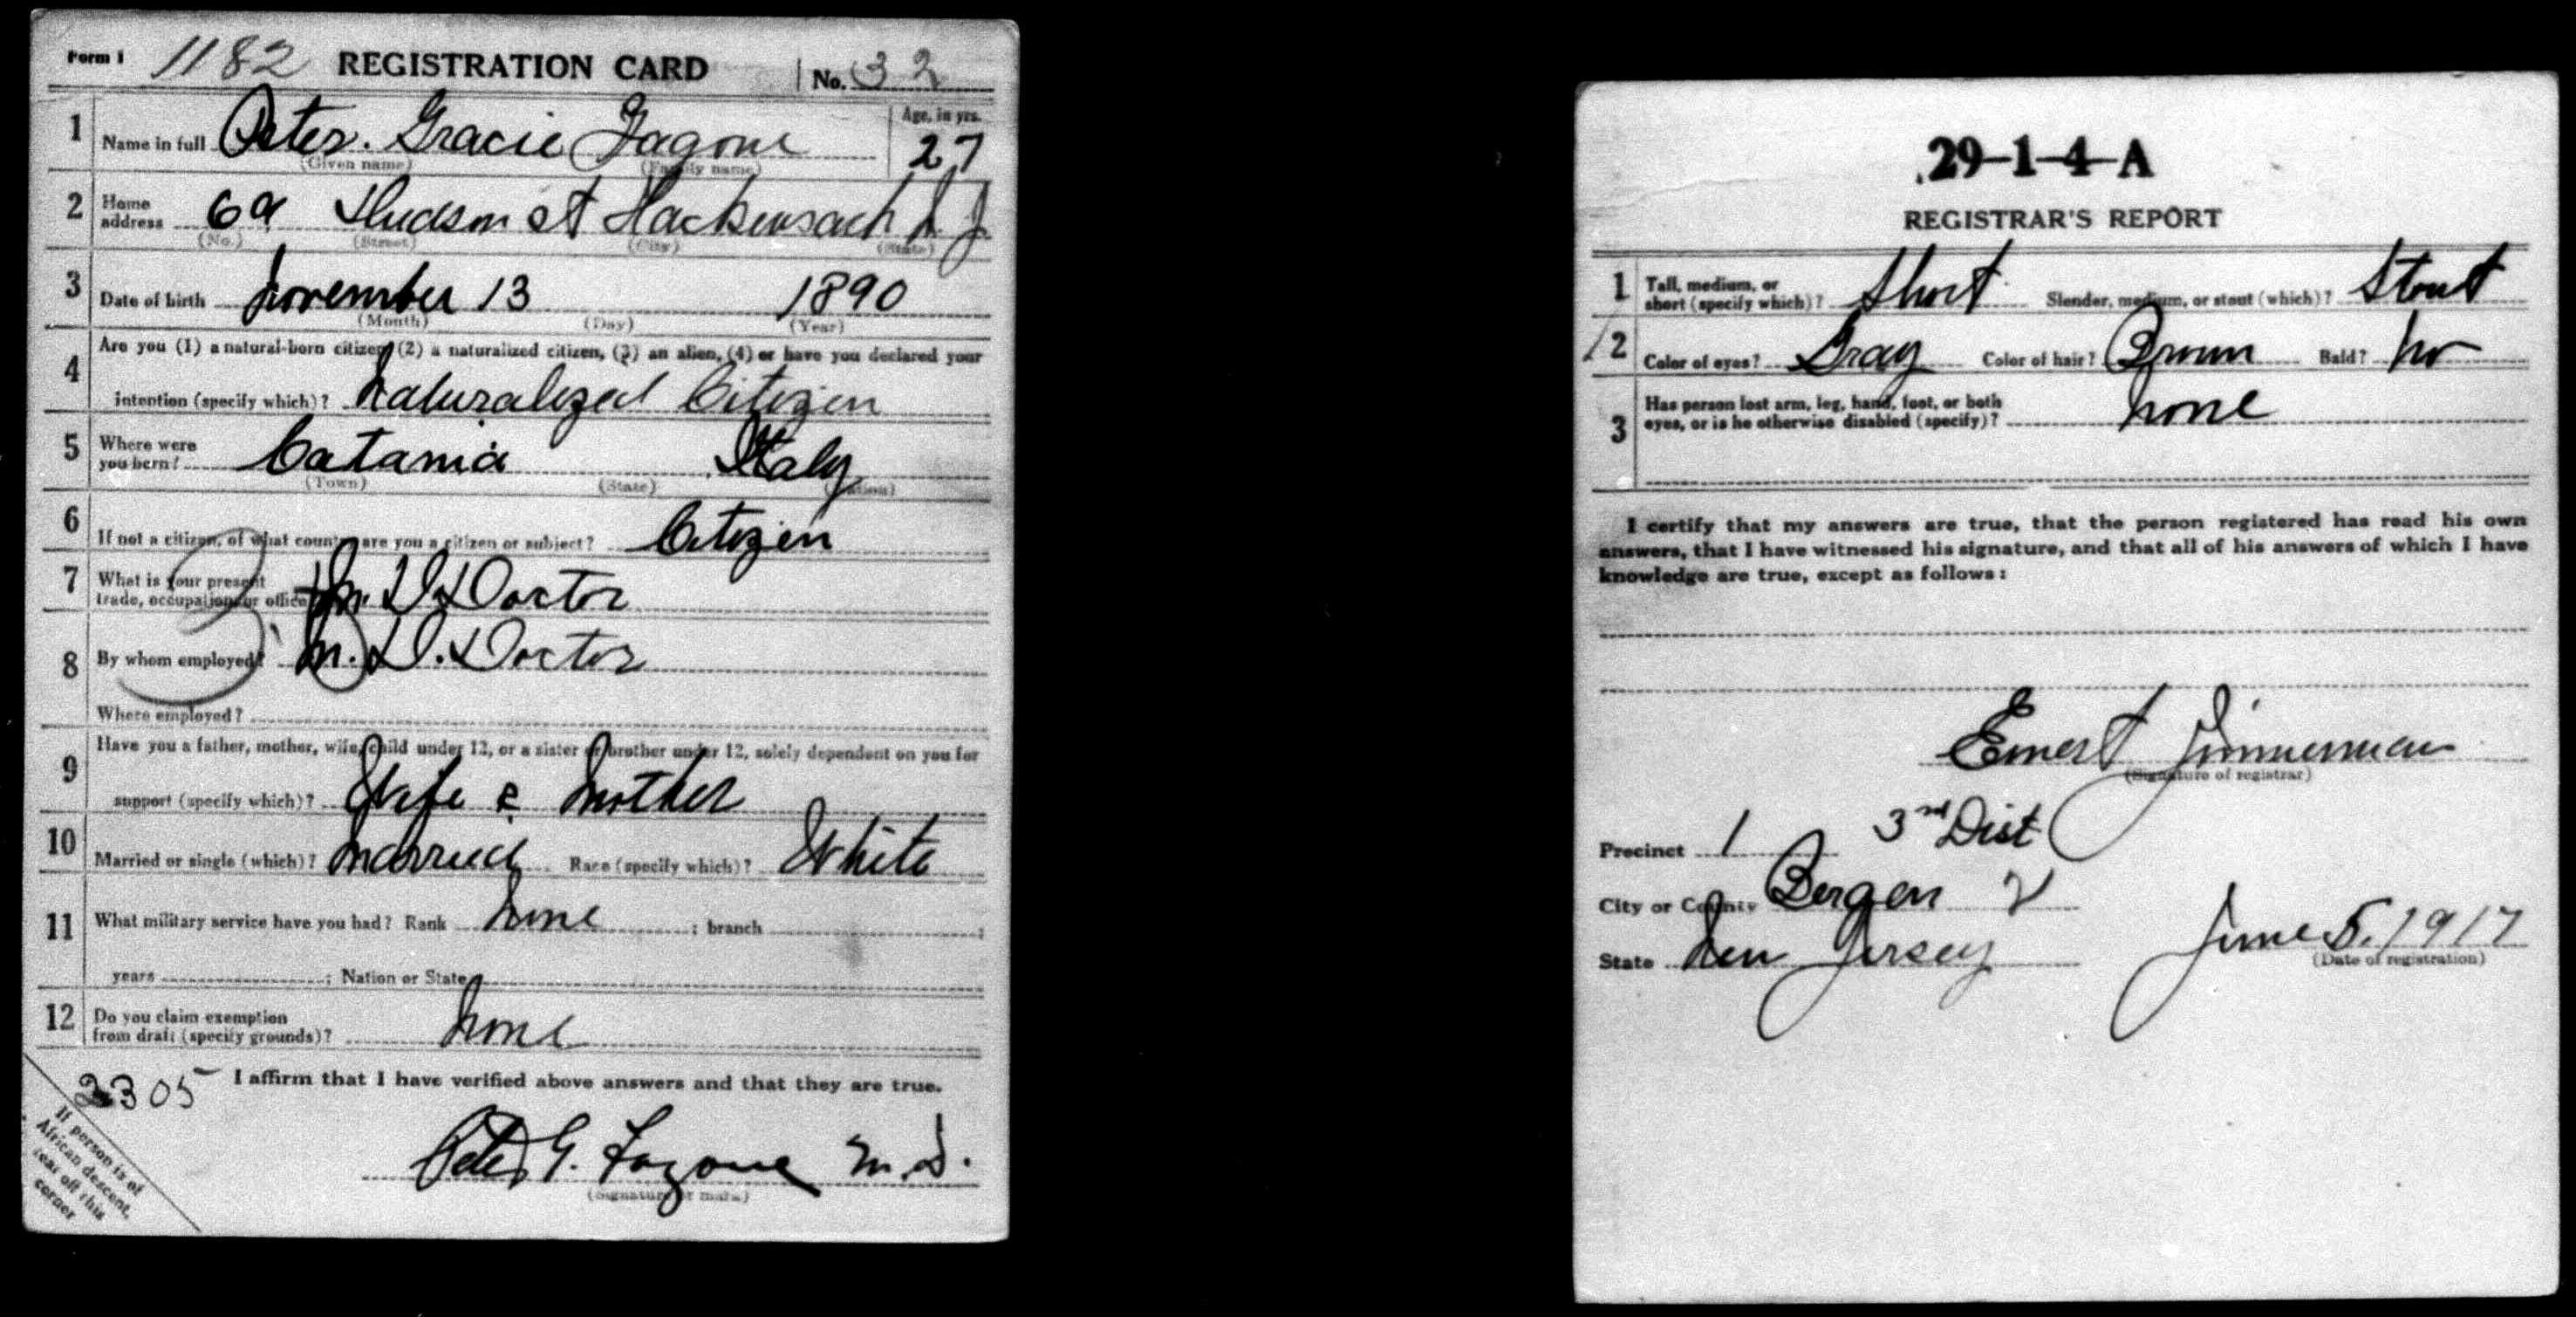 Form 1 1182 REGISTRATION CARD No. 32
1 Name in full Peter. Gracie Fagone Age, in yrs. 27
(Given name) (Family name)
2 Home address 69 Hudson St Hackensack N J
(No.) (Street) (City) (State)
3 Date of birth November 13 1890
(Month) (Day) (Year)
4 Are you (1) a natural-born citizen, (2) a naturalized citizen, (3) an alien, (4) or have you declared your
intention (specify which)? Naturalized Citizen
5 Where were you born? Catania Italy
(Town) (State) (Nation)
6 If not a citizen, of what country are you a citizen or subject? Citizen
7 What is your present trade, occupation or office M. D. Doctor
8 By whom employed? M. D. Doctor
Where employed?
9 Have you a father, mother, wife, child under 12, or a sister or brother under 12, solely dependent on you for
support (specify which)? Wife & Mother
10 Married or single (which)? Married Race (specify which)? White
11 What military service have you had? Rank None ; branch ;
years ; Nation or State
12 Do you claim exemption from draft (specify grounds)? None
2305 I affirm that I have verified above answers and that they are true.
Peter G. Fagone M.D.
(Signature or mark)
If person is of
African descent,
tear off this
corner
29-1-4-A
REGISTRAR'S REPORT
1 Tall, medium, or short (specify which)? Short Slender, medium, or stout (which)? Stout
2 Color of eyes? Gray Color of hair? Brown Bald? No
3 Has person lost arm, leg, hand, foot, or both eyes, or is he otherwise disabled (specify)? None
I certify that my answers are true, that the person registered has read his own
answers, that I have witnessed his signature, and that all of his answers of which I have
knowledge are true, except as follows:
Ernest Zimmerman
(Signature of registrar)
Precinct 1 3rd Dist
City or County Bergen
State New Jersey June 5. 1917
(Date of registration)